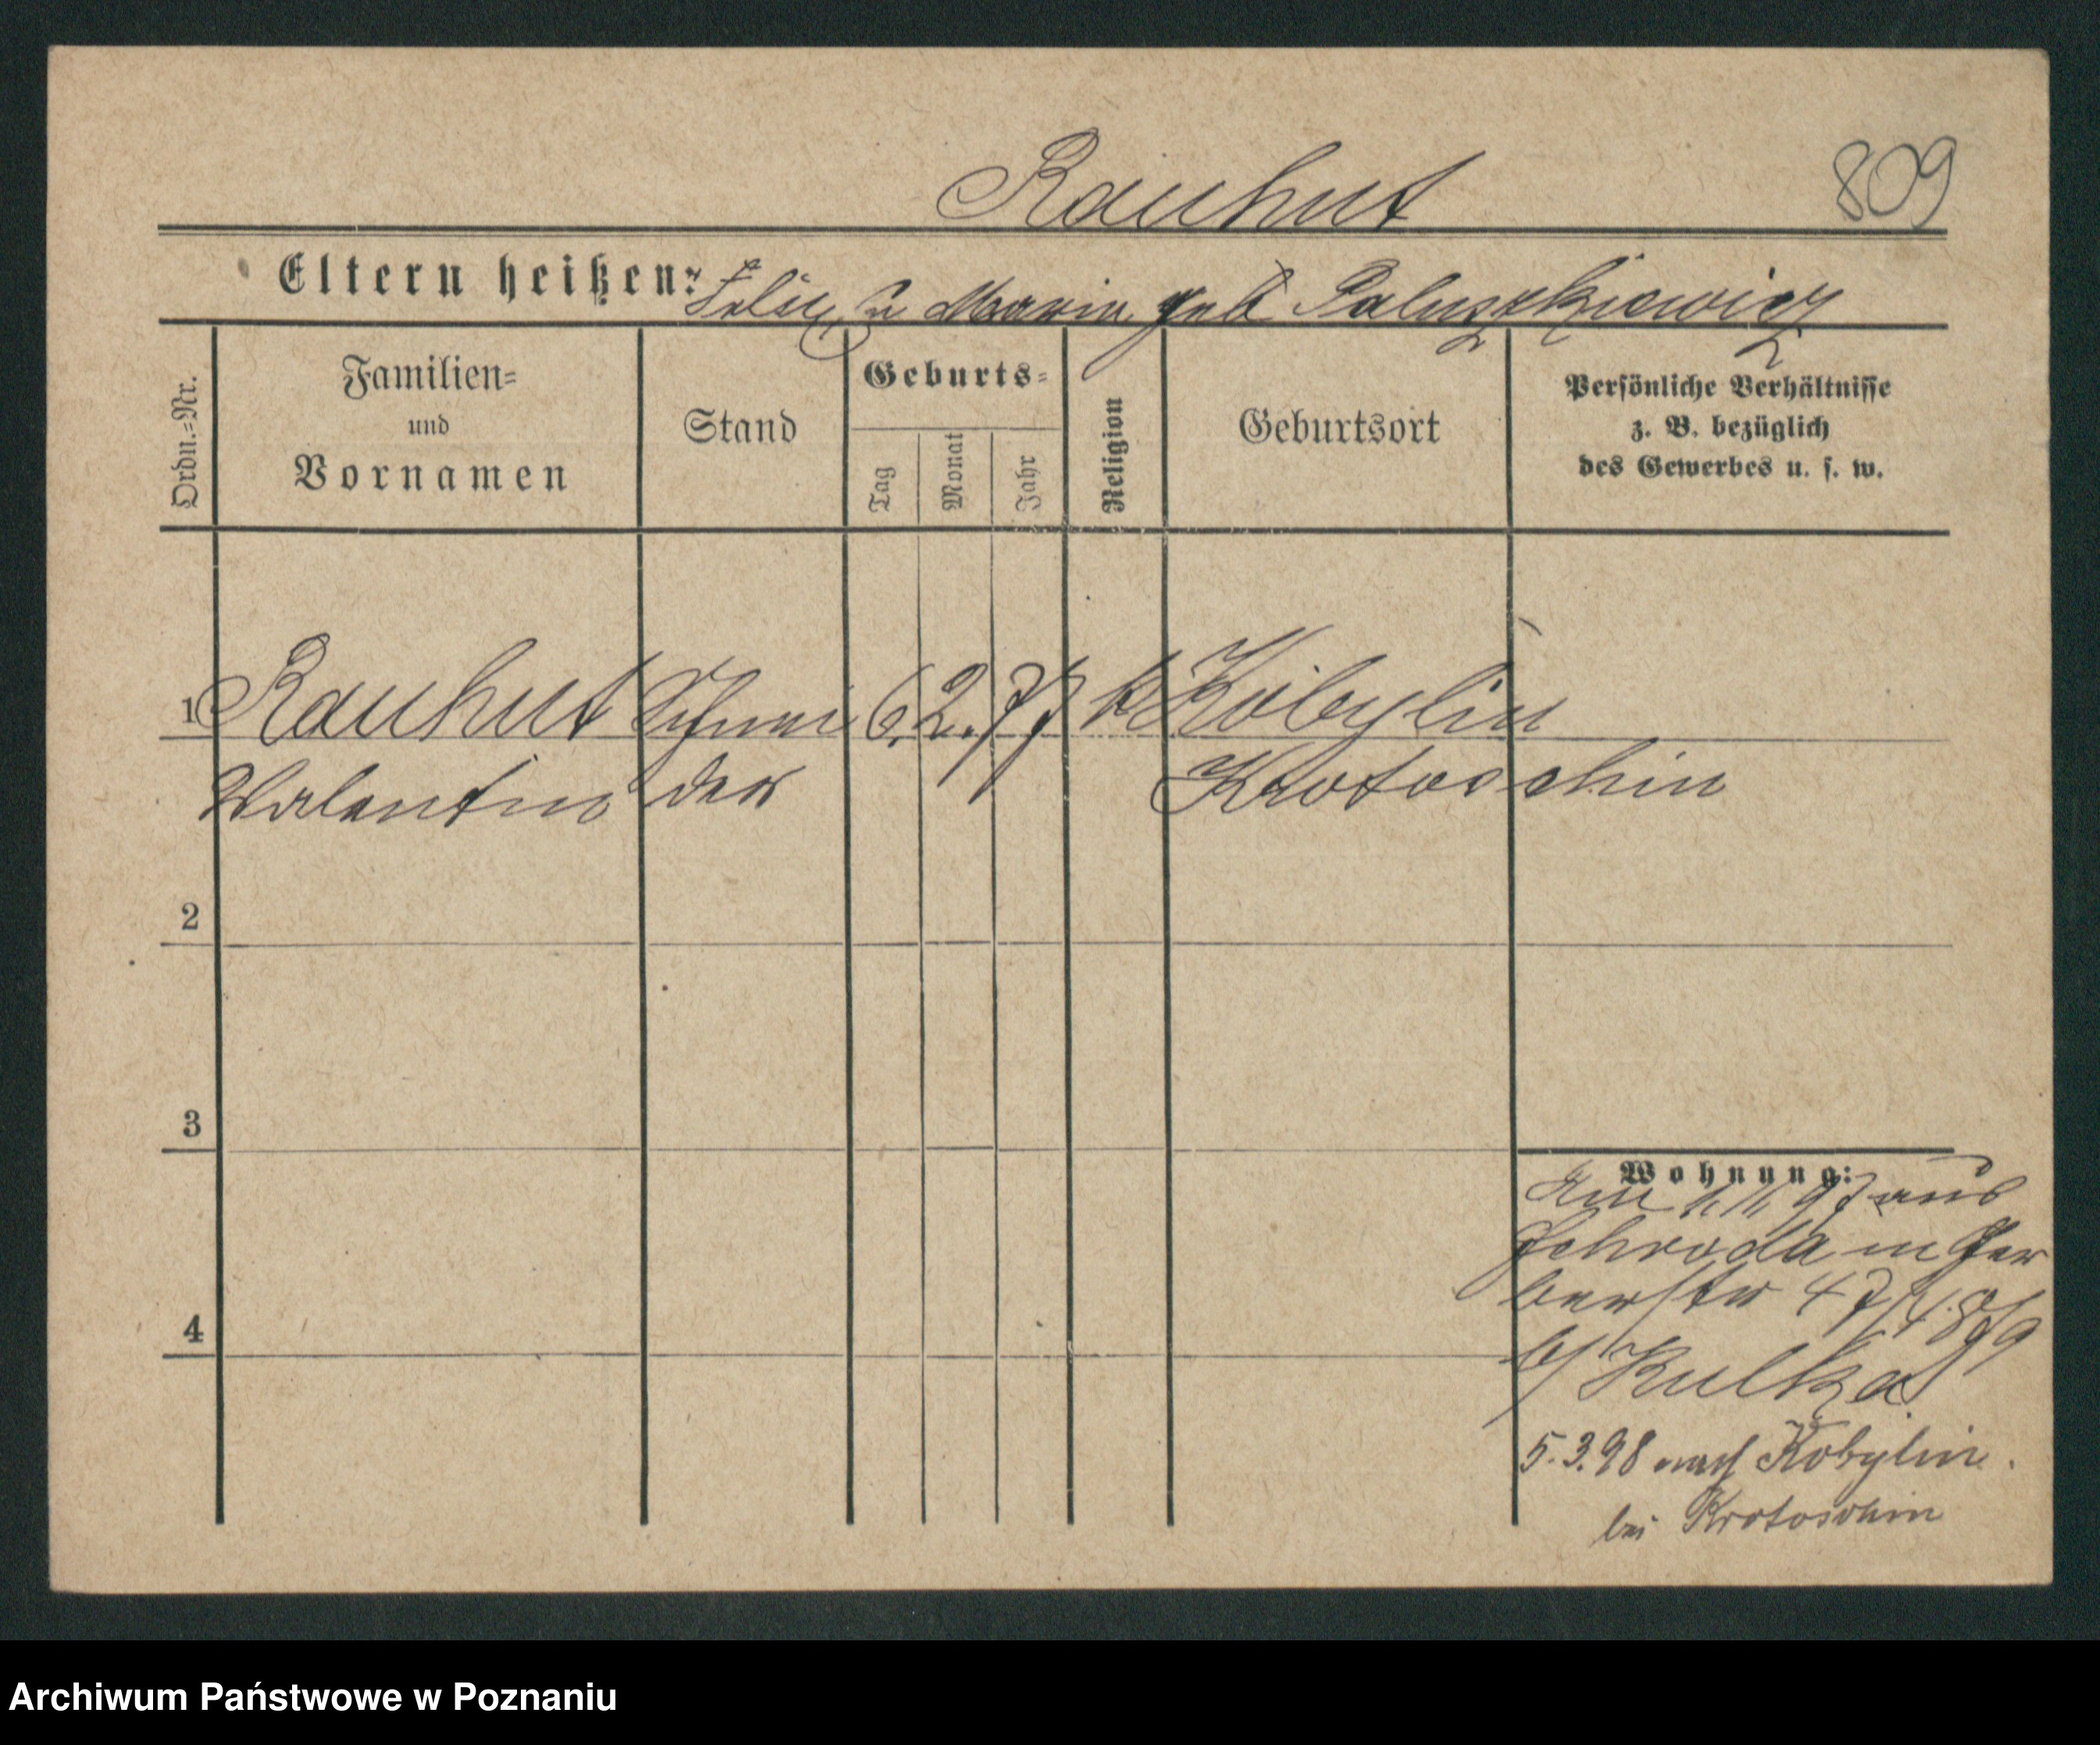 Rauhut
809
Eltern heißen: Felix u Maria geb Paluszkiewicz
Ordn.=Nr.
Familien=
und
Vornamen
Stand
Geburts=
Tag
Monat
Jahr
Religion
Geburtsort
Persönliche Verhältnisse
z. B. bezüglich
des Gewerbes u. s. w.
1 Rauhut Schnei 6. 2. 77 k Kobylin
Valentin der Krotoschin
2
3
4
Wohnung:
Am 1. 11. 97 aus
Schroda in Ger
berstr 47
b/ Kulka
5.3.98 nach Kobylin.
bei Krotoschin
Archiwum Państwowe w Poznaniu